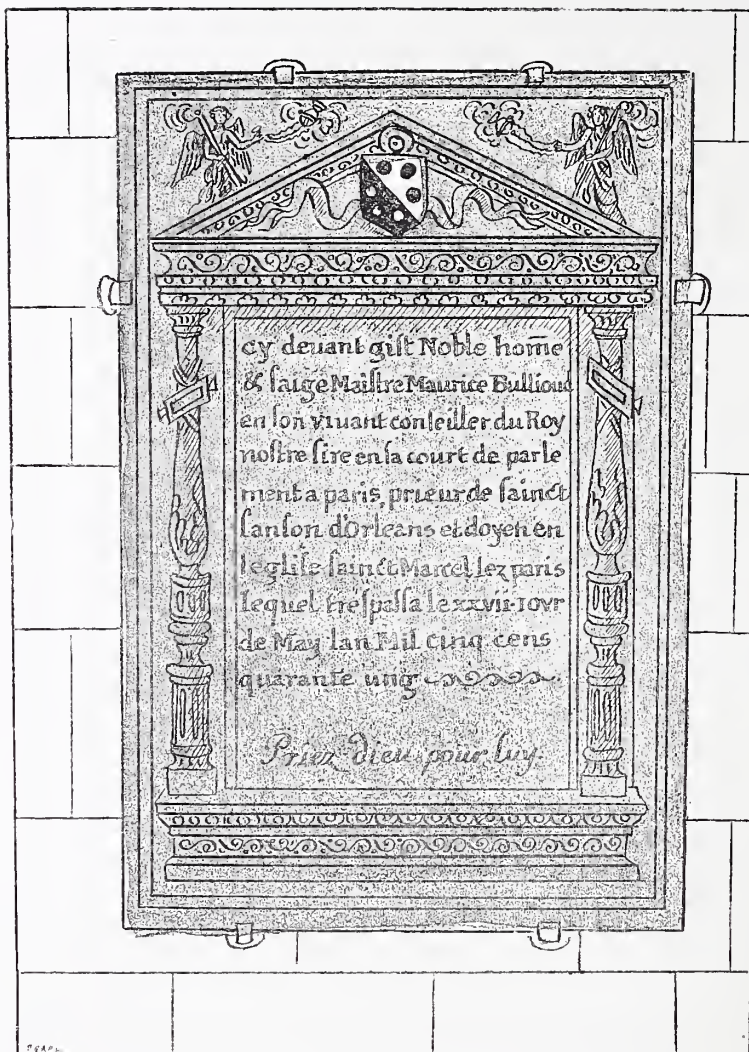 cy deuant gist Noble hom̄e
& saige Maistre Maurice Bullioud
en son viuant conseiller du Roy
nostre sire en sa court de parle
ment a paris, prieur de sainct
sanson d'Orleans et doyen en
leglise sainct Marcel lez paris
lequel trespassa le xxvii. Iovr
de May lan Mil cinq cens
quarante ung
Priez dieu pour luy.